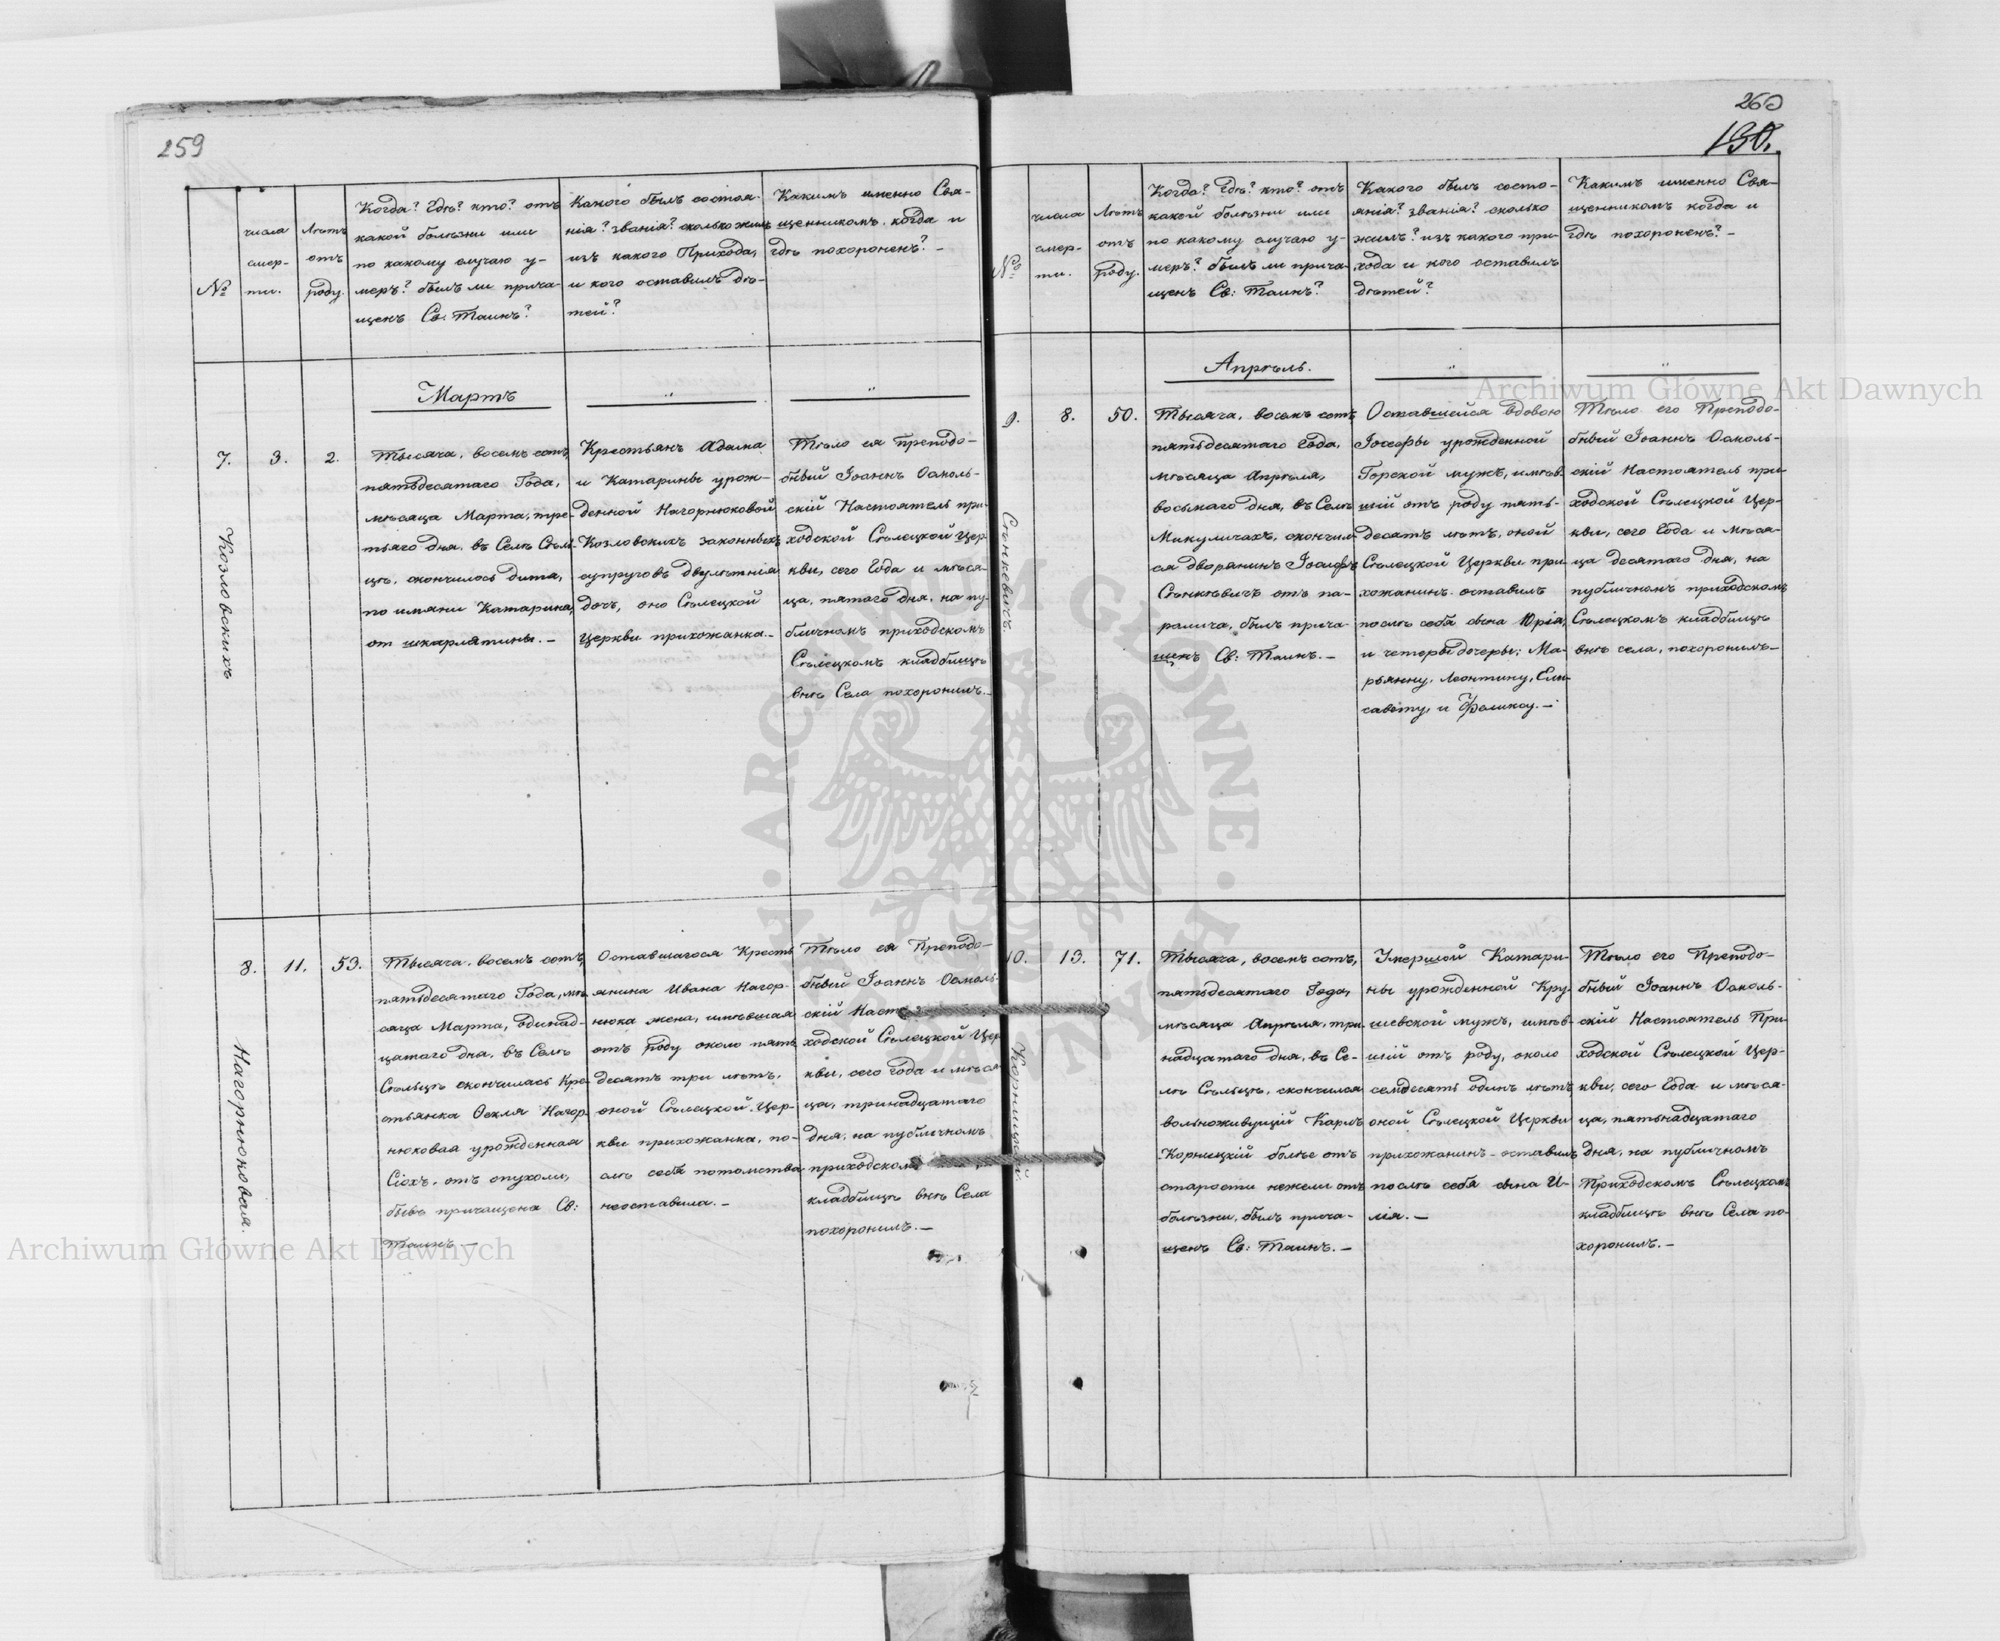 259
№
числа
смер-
ти.
Лѣтъ
отъ
роду.
Когда? Гдѣ? кто? отъ
какой болѣзни или
по какому случаю у-
меръ? былъ ли прича-
щенъ Св: Таинъ?
Какого былъ состоя-
нія? званія? сколько жилъ
изъ какого Прихода,
и кого оставилъ дѣ-
тей?
Какимъ именно Свя-
щенникомъ, когда и
гдѣ похороненъ? -
Мартъ
"
"
7.
3.
2.
Козловскихъ
Тысяча, восемь сотъ,
пятьдесятаго Года,
мѣсяца Марта, тре-
тьяго дня, въ Селѣ Сѣль-
цѣ, скончилось дитя,
по имяни Катарина,
от шкарлятины. -
Крестьянъ Адама
и Катарины урож-
денной Нагорнюковой
Козловскихъ законныхъ
супруговъ двулѣтнія
дочь, оно Сѣлецкой
Церкви прихожанка. -
Тѣло ея Преподо-
бный Іоаннъ Осколь-
скій Настоятель при-
ходской Сѣлецкой Цер-
кви, сего Года и мѣся-
ца, пятаго дня, на пу-
бличномъ приходскомъ
Сѣлецкомъ кладбищѣ
внѣ Села похоронилъ. -
8.
11.
53.
Нагорнюковая.
Тысяча, восемь сотъ,
пятьдесятаго Года, мѣ-
сяца Марта, одинад-
цатаго дня, въ Селѣ
Сѣльцѣ скончилась Кре-
стьянка Текля Нагор-
нюковая урожденная
Сіохъ, отъ опухоли,
бывъ причащена Св:
Таинъ -
Оставшагося Кресть-
янина Ивана Нагор-
нюка жена, имѣвшая
отъ роду около пять
десятъ три лѣтъ,
оной Сѣлецкой Цер-
кви прихожанка, по-
слѣ себя потомства
неоставила. -
Тѣло ея Преподо-
бный Іоаннъ Осколь-
скій Наст
ходской Сѣлецкой Цер-
кви, сего года и мѣся-
ца, тринадцатаго
дня, на публичномъ
приходском
кладбищѣ внѣ Села
похоронилъ. -
260
130.
№
числа
смер-
ти.
Лѣтъ
отъ
роду.
Когда? Гдѣ? кто? отъ
какой болѣзни или
по какому случаю у-
меръ? былъ ли прича-
щенъ Св: Таинъ?
Какого былъ состо-
янія? званія? сколько
жилъ? изъ какого при-
хода и кого оставилъ
дѣтей?
Какимъ именно Свя-
щенникомъ когда и
гдѣ похороненъ? -
Апрѣль.
"
"
9.
8.
50.
Сѣнкевичъ.
Тысяча, восемь сотъ
пятьдесятаго Года,
мѣсяца Апрѣля,
восьмаго дня, въ Селѣ
Микуличахъ, скончил-
ся дворянинъ Іосифъ
Сѣнкѣвичъ отъ па-
ралича, былъ прича-
щенъ Св: Таинъ. -
Оставшейся вдовою
Іосефы урожденной
Горской мужъ, имѣв-
шій отъ роду пять-
десятъ лѣтъ, оной
Сѣлецкой Церкви при-
хожанинъ. оставилъ
послѣ себя сына Юрія,
и четеры дочеры: Ма-
рьянну, Леонтину, Ели-
савету, и Фѣликсу. -
Тѣло его Преподо-
бный Іоаннъ Осколь-
скій Настоятель при-
ходской Сѣлецкой Цер-
кви, сего Года и мѣся-
ца десятаго дня, на
публичномъ приходскомъ
Сѣлецкомъ кладбищѣ
внѣ села, похоронилъ -
10.
13.
71.
Корницкій.
Тысяча, восемь сотъ,
пятьдесятаго Года,
мѣсяца Апрѣля, три-
надцатаго дня, въ Се-
лѣ Сѣльцѣ, скончился
вольноживущій Карлъ
Корницкій болѣе отъ
старости нежели отъ
болѣзни, былъ прича-
щенъ Св: Таинъ. -
Умершой Катари-
ны урожденной Кру-
шевской мужъ, имѣв-
шій отъ роду, около
семдесятъ одинъ лѣтъ,
оной Сѣлецкой Церкви
прихожанинъ - оставилъ
послѣ себя сына И-
лія. -
Тѣло его Преподо-
бный Іоаннъ Осколь-
скій Настоятель При-
ходской Сѣлецкой Цер-
кви, сего Года и мѣся-
ца, пятьнадцатаго
дня, на публичномъ
Приходскомъ Сѣлецкомъ
кладбищѣ внѣ Села по-
хоронилъ. -
Archiwum Główne Akt Dawnych
Archiwum Główne Akt Dawnych